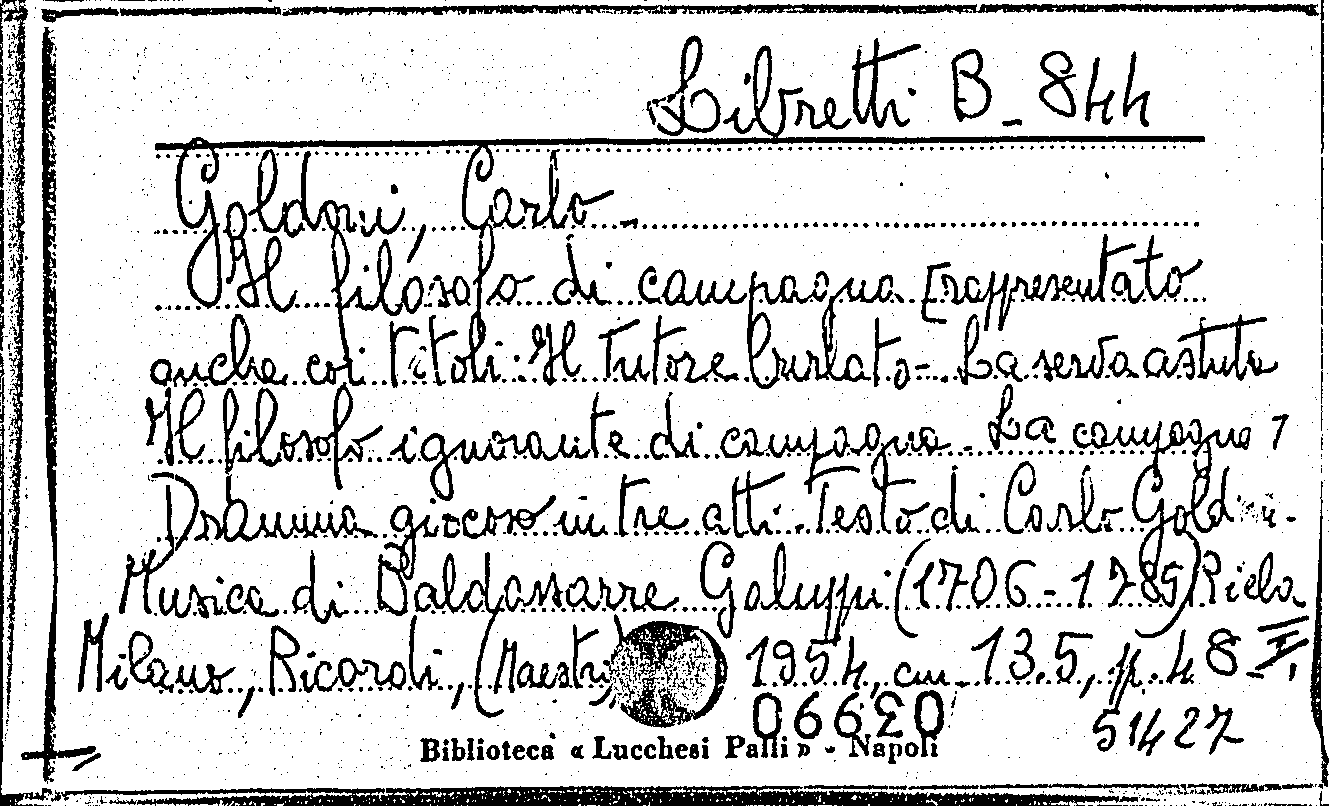 Libretti B - 844
Goldoni, Carlo -
Il filosofo di campagna [rappresentato
anche coi titoli: Il Tutore burlato - La serva astuta
Il filosofo ignorante di campagna. La campagna]
Dramma giocoso in tre atti. Testo di Carlo Goldoni.
Musica di Baldassarre Galuppi (1706-1785)
Milano, Ricordi, (Maestri) 1954, cm. 13.5, p. 48
06620
51427
Biblioteca « Lucchesi Palli » - Napoli